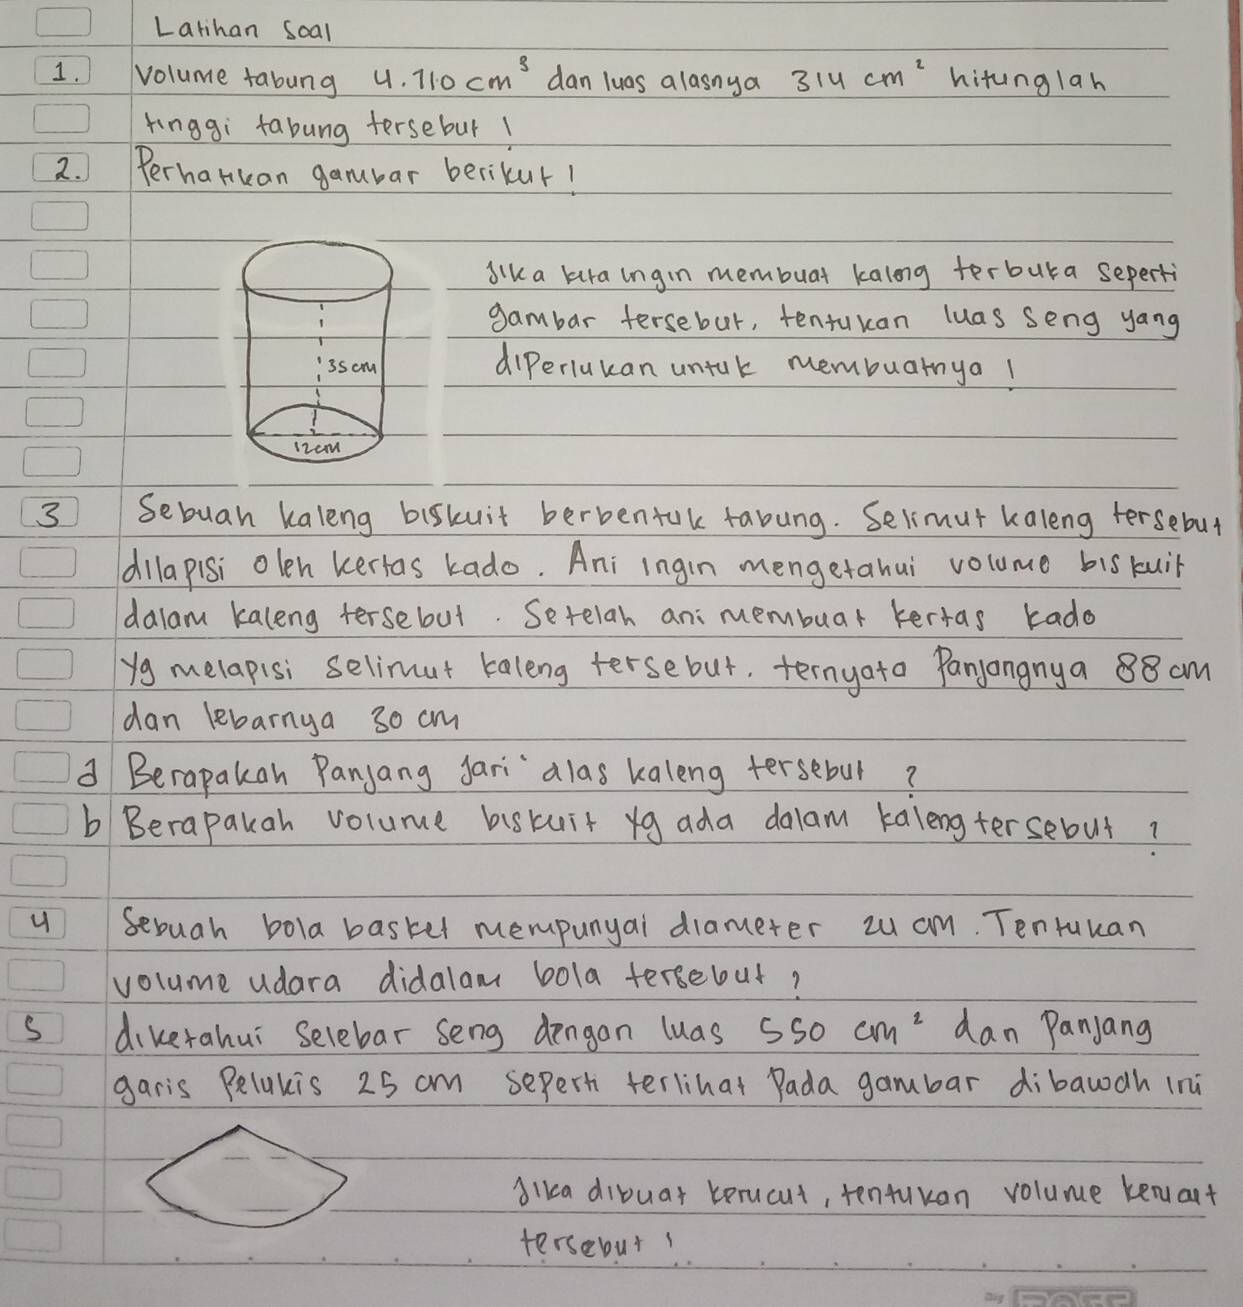 Latihan Soal
1. Volume tabung 4.710 cm³ dan luas alasnya 314 cm² hitunglah
tinggi tabung tersebut !
2. Perhatikan gambar berikut !
Jika kita ingin membuat kaleng terbuka seperti
gambar tersebut, tentukan luas seng yang
diperlukan untuk membuatnya !
35 cm
12 cm
3 Sebuah kaleng biskuit berbentuk tabung. Selimut kaleng tersebut
dilapisi oleh kertas kado. Ani ingin mengetahui volume biskuit
dalam kaleng tersebut. Setelah ani membuat kertas kado
yg melapisi selimut kaleng tersebut, ternyata Panjangnya 88 cm
dan lebarnya 30 cm
a Berapakah Panjang Jari" alas kaleng tersebut ?
b Berapakah volume biskuit yg ada dalam kaleng tersebut ?
4 Sebuah bola basket mempunyai diameter 24 cm. Tentukan
volume udara didalam bola tersebut ?
5 diketahui Selebar Seng dengan luas 550 cm² dan Panjang
garis Pelukis 25 cm seperti terlihat Pada gambar dibawah ini
Jika dibuat kerucut, tentukan volume kerucut
tersebut !